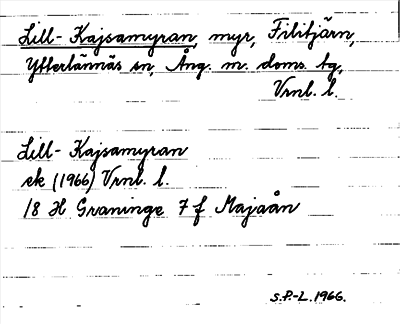 Lill-Kajsamyran, myr, Filitjärn,
Ytterlännäs sn, Ång. m. doms. tg,
Vrnl. l.
Lill-Kajsamyran
ek (1966) Vrnl. l.
18 H Graninge 7 f Majaån
S.P.-L. 1966.